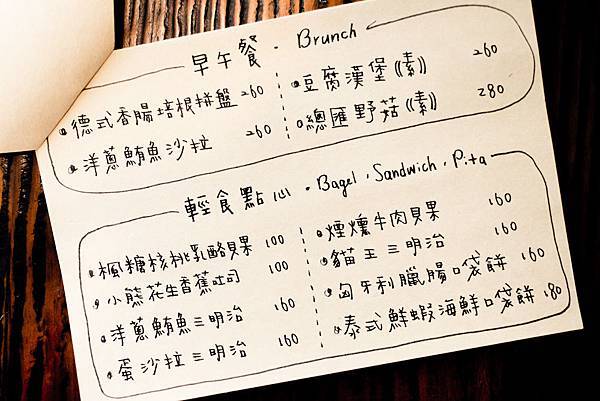 早午餐 • Brunch
德式香腸培根拼盤 260
洋蔥鮪魚沙拉 260
豆腐漢堡(素) 260
總匯野菇(素) 280
輕食點心 • Bagel, Sandwich, Pita
楓糖核桃乳酪貝果 100
小熊花生香蕉吐司 100
洋蔥鮪魚三明治 160
蛋沙拉三明治 160
煙燻牛肉貝果 160
貓王三明治 160
匈牙利臘腸口袋餅 160
泰式鮮蝦海鮮口袋餅 180